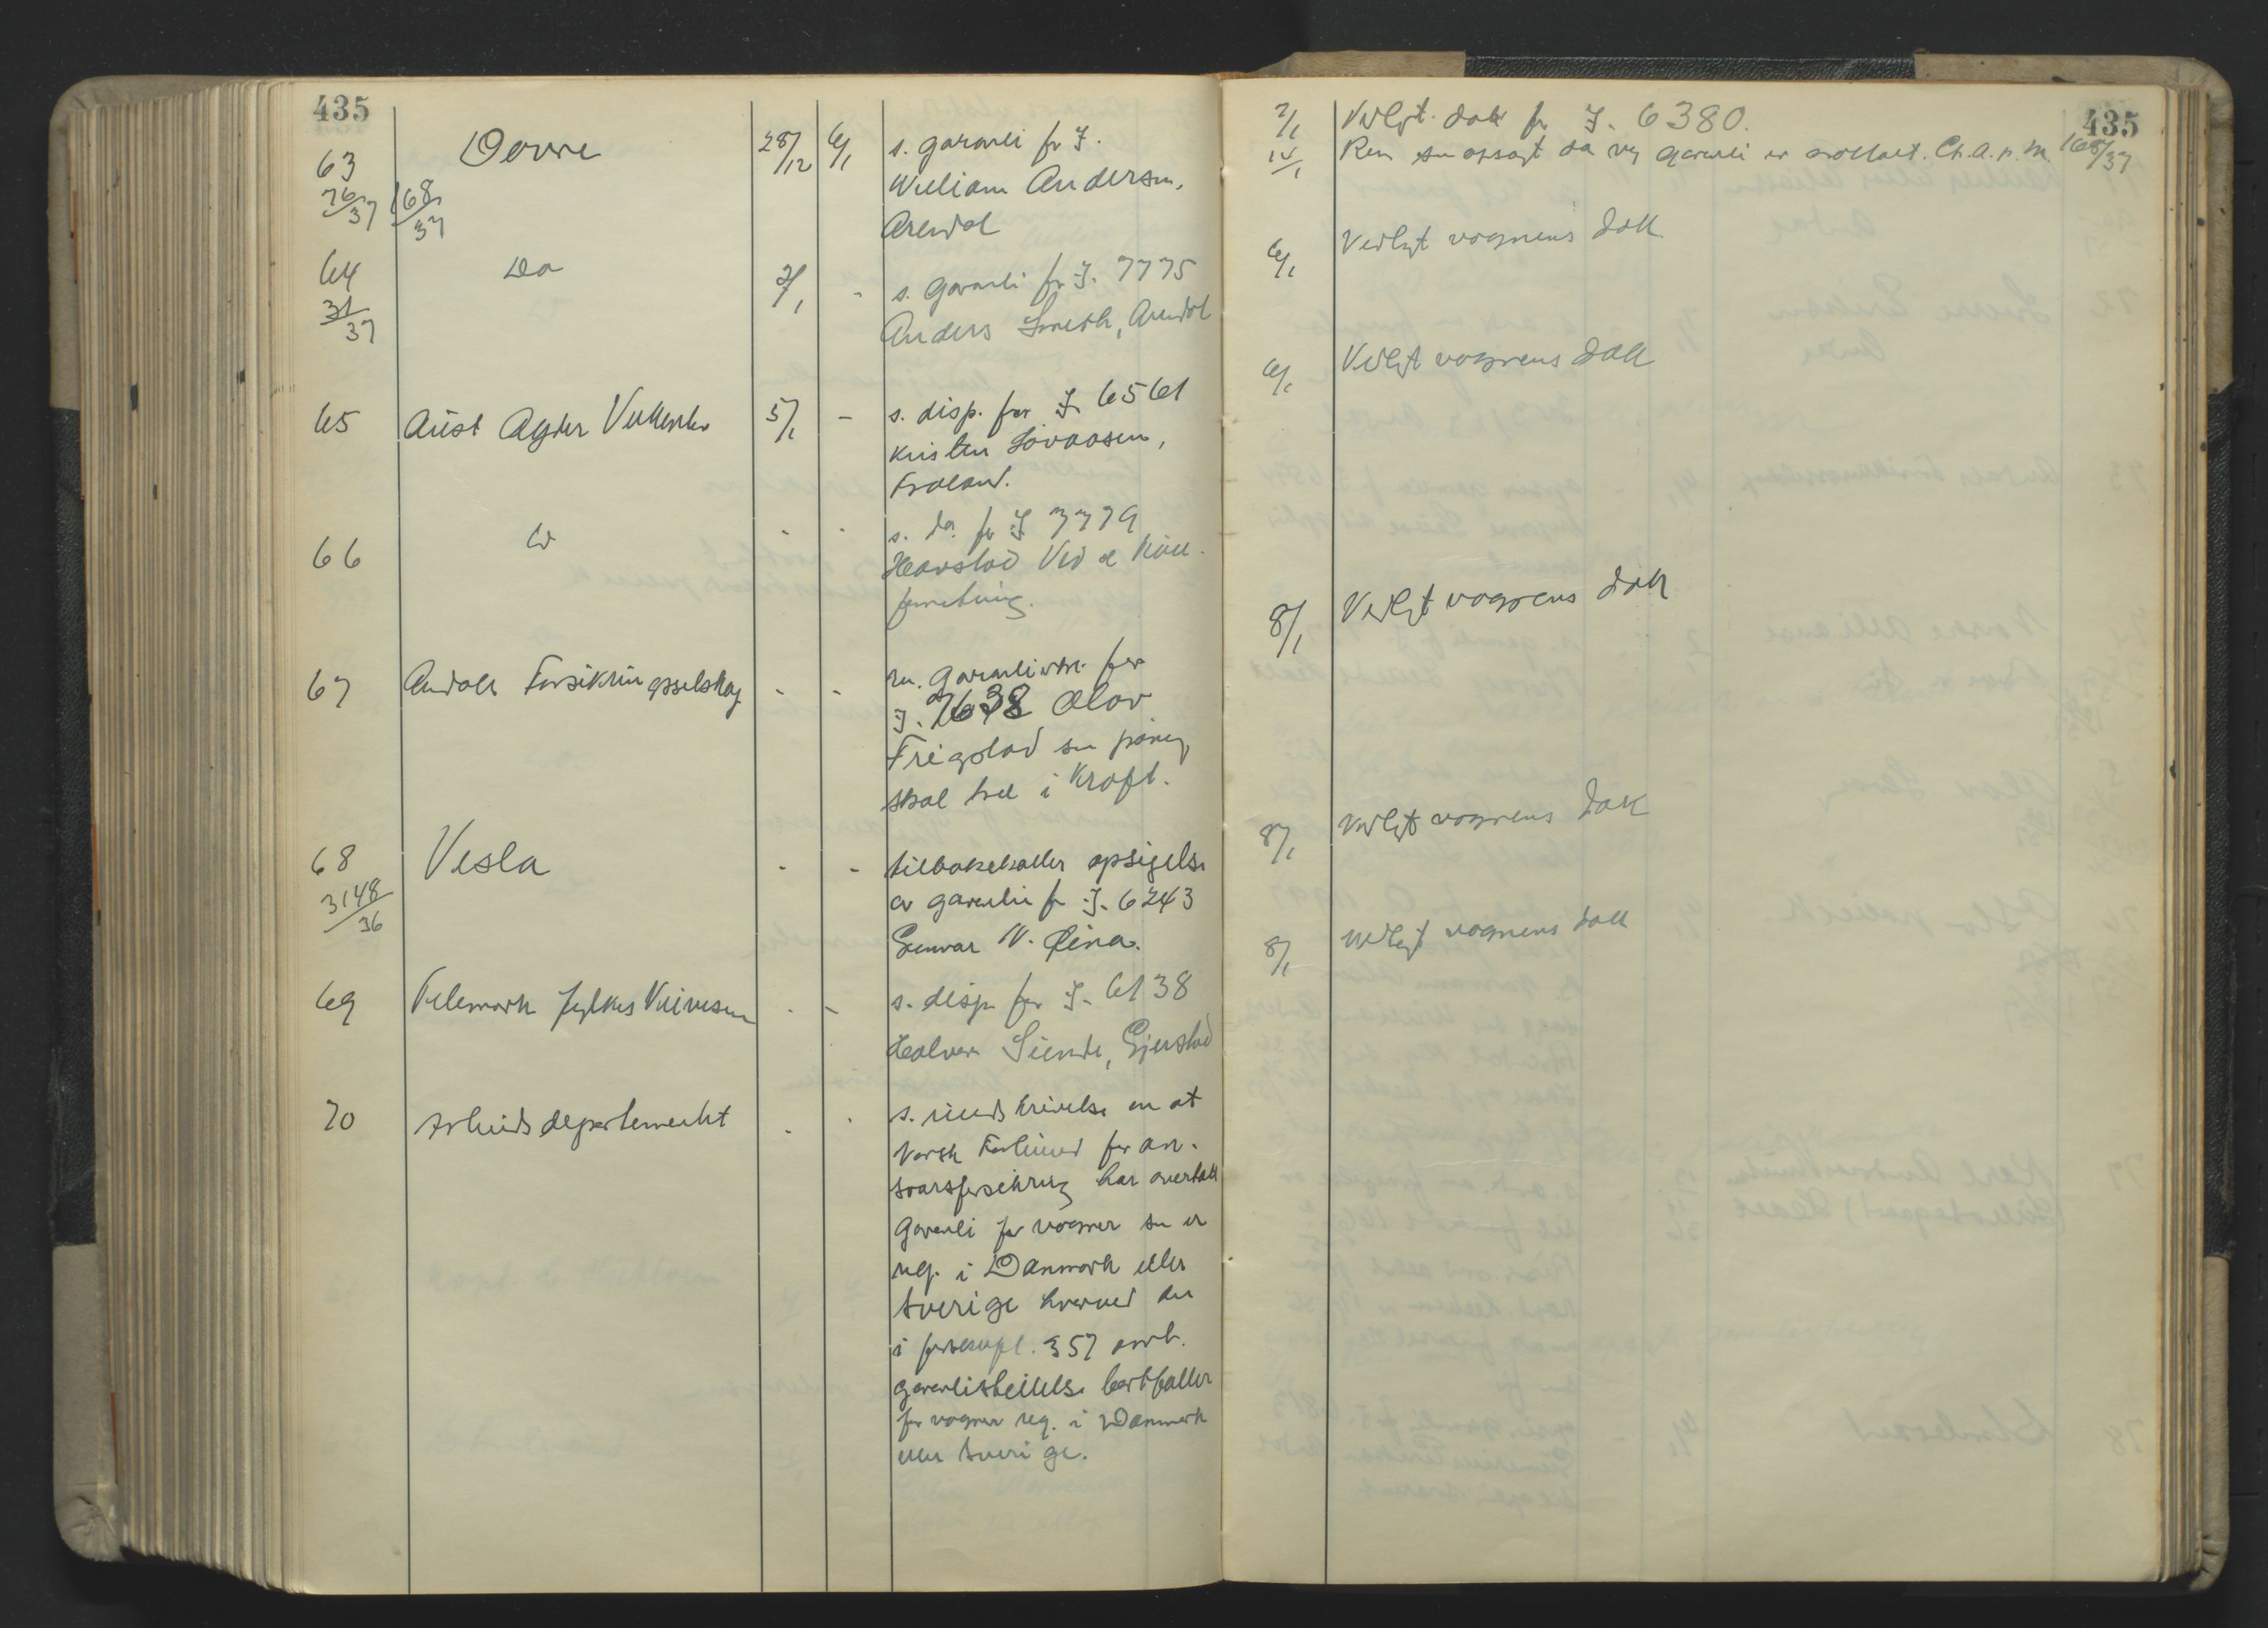 435
63
76/37 168/37
Dovre
28/12 6/1
s. garanti for I.
William Andersen,
Arendal
64
31/37
Do
2/1 -
s. garanti for I. 7775
Anders Smeth, Arendal
65
Aust Agder Veikontor
5/1 -
s. disp. for I. 6561
Kristen Lovaasen,
Froland.
66
Do
- -
s. do. for I 7779
Harstad Ved & Kull
forretning.
67
Arendals Forsikringsselskap
- -
garanti for
I. 7638 Olav
Frigstad
skal tre i kraft.
68
3148/36
Vesla
- -
tilbakekaller opsigelse
av garanti for I. 6243
Gunvar N.
69
Telemark fylkes Veivesen
- -
s. disp for I. 6138
Halvor, Gjerstad
70
Arbeidsdepartementet
- -
s. rundskrivelse om at
Norsk Forbund for an-
svarsforsikring har overtatt
garanti for vogner som er
reg. i Danmark eller
Sverige hvorved den
i 357 omh.
garantistillelse bortfaller
for vogner reg. i Danmark
eller Sverige.
435
7/1 Vedlagt dok for I. 6380.
15/1 opsagt da ny garanti er mottatt. Ch.a.p.m. 168/37
6/1 Vedlagt vognens dok
6/1 Vedlagt vognens dok
8/1 Vedlagt vognens dok
8/1 Vedlagt vognens dok
8/1 Vedlagt vognens dok